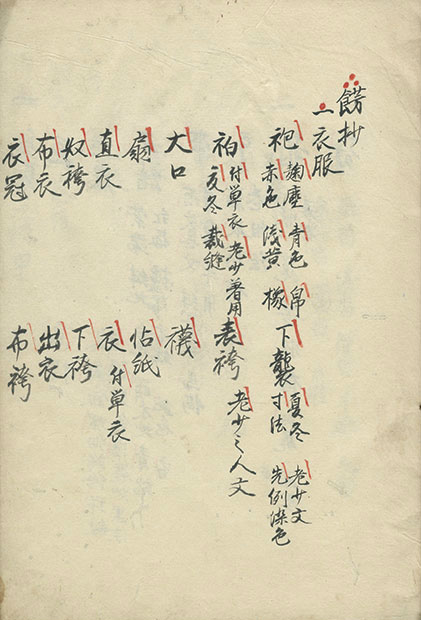 餝抄
一衣服
袍 麹塵 青色 帛 赤色 浅黄 橡 下襲 夏冬 老少文 寸法 先例染色
衵 付単衣 老少着用 夏冬 裁縫 表袴 老少之人文
大口 襪
扇 帖紙
直衣 衣 付単衣
奴袴 下袴
布衣 出衣
衣冠 布袴